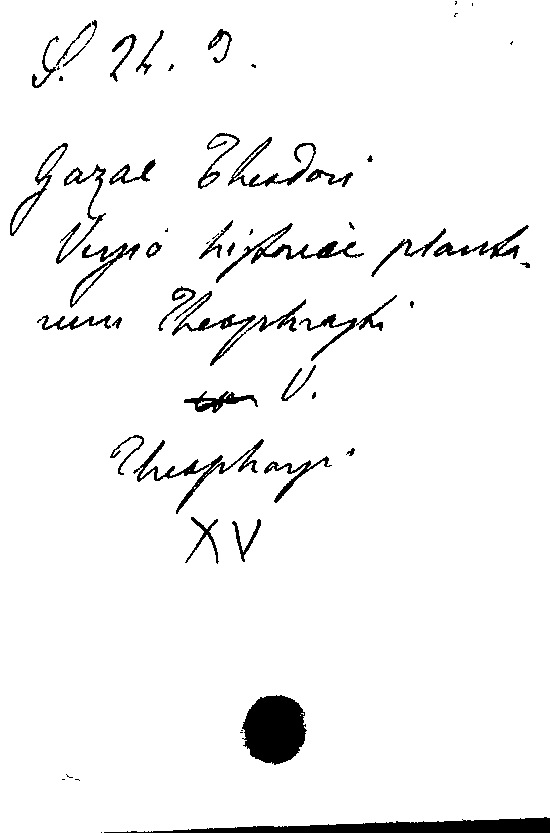 S. 24. 3.
Gazae Theodori
Versio historiae planta-
rum Theophrasti
V.
Theophrasti
XV